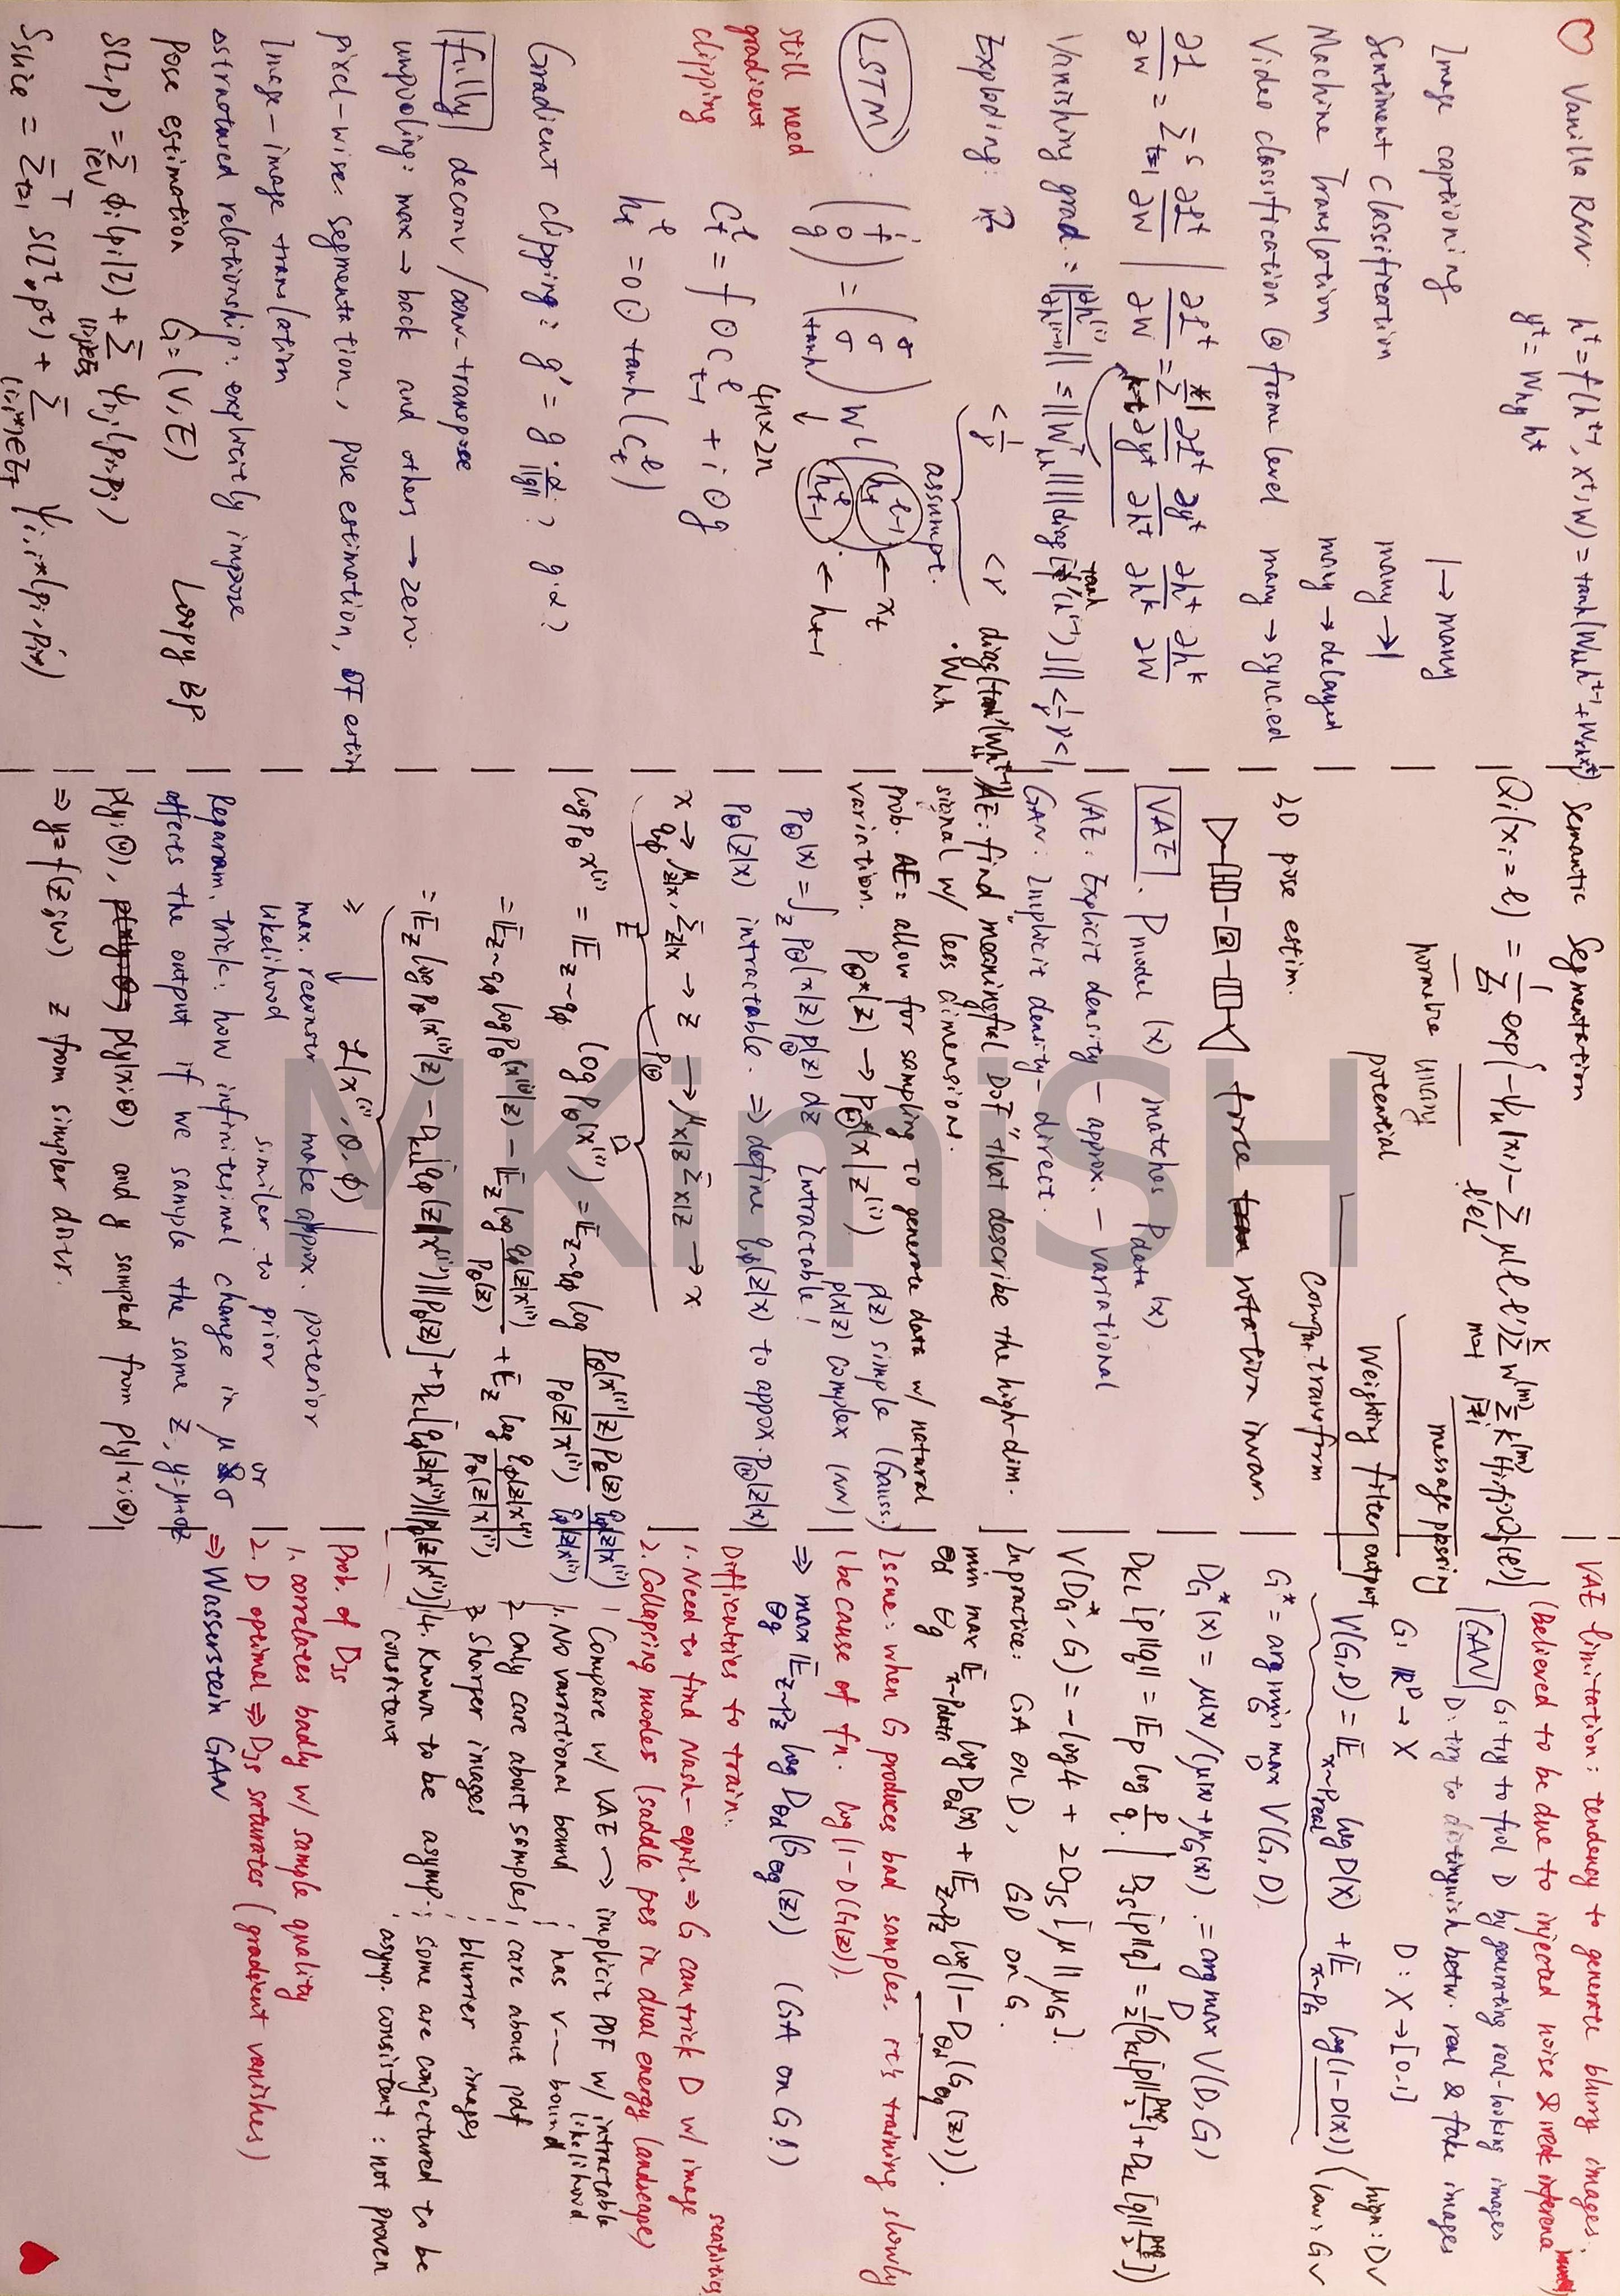 ♡ Vanilla RNN. h^t = f(h^{t-1}, x^t; W) = tanh(W_{hh}h^{t-1} + W_{xh}x^t)
y^t = W_{hy} h^t
Image captioning 1 → many
Sentiment Classification many → 1
Machine Translation many → delayed
Video classification @ frame level many → synced
∂L/∂W = Σ_{t=1}^S ∂L^t/∂W | ∂L^t/∂W = Σ_{k=1}^t ∂L^t/∂y^t ∂y^t/∂h^t ∂h^t/∂h^k ∂h^k/∂W
Vanishing grad.:
< 1/γ < γ diag(tanh'(W_{hh}h^{t-1}))
Exploding: assumpt. · W_{hh}
LSTM : (i f o g) = (σ σ σ tanh) W (h_t^{l-1} h_{t-1}^l) ← x_t ← h_{t-1}
still need
gradient
clipping
4n×2n
C_t^l = f ⊙ C_{t-1}^l + i ⊙ g
h_t^l = o ⊙ tanh(C_t^l)
Gradient clipping: g' = g · α/||g||
fully deconv / conv-transpose
unpooling: max → back and others → zero.
pixel-wise: segmentation, pose estimation, OF estim
Image-image translation
relationship: explicitly impose
Pose estimation G = (V, E) Loopy BP.
S(I,p) = Σ_{i∈V} φ_i(p_i|I) + Σ_{(i,j)∈E_s} ψ_{i,j}(p_i, p_j),
S_slice = Σ_{t=1}^T S(I^t, p^t) + Σ_{(i,i*)∈E_f} ψ_{i,i*}(p_i, p_{i*})
Semantic Segmentation
Q_i(x_i = l) = 1/Z_i exp{-ψ_u(x_i) - Σ_{l'∈L} μ(l,l') Σ_{m=1}^K w^{(m)} Σ_{j≠i} k^{(m)}(f_i,f_j) Q_j(l')}
normalize unary message passing
potential
Weighting filter output
Compat. transform
3D pose estim.
force rotation invar.
VAE. P_model(x) matches P_data(x)
VAE: Explicit density - approx. - variational
GAN: Implicit density - direct.
AE: find "meaningful DoF" that describe the high-dim.
signal w/ less dimensions.
Prob. AE = allow for sampling to generate data w/ natural
variation. P_θ*(z) → P_θ*(x|z^{(i)}) p(z) simple (Gauss.)
p(x|z) complex (NN)
P_θ(x) = ∫_z P_θ(x|z) p_θ(z) dz Intractable!
P_θ(z|x) intractable. ⇒ define q_φ(z|x) to approx. P_θ(z|x)
x → μ_{z|x}, Σ_{z|x} → z → μ_{x|z} Σ_{x|z} → x
q_φ E P_θ D
log P_θ x^{(i)} = E_{z~q_φ} log P_θ(x^{(i)}) = E_{z~q_φ} log P_θ(x^{(i)}|z) P_θ(z) / P_θ(z|x^{(i)}) q_φ(z|x^{(i)}) / q_φ(z|x^{(i)})
= E_{z~q_φ} log P_θ(x^{(i)}|z) - E_z log q_φ(z|x^{(i)}) / P_θ(z) + E_z log q_φ(z|x^{(i)}) / P_θ(z|x^{(i)})
= E_z log P_θ(x^{(i)}|z) - D_KL[q_φ(z|x^{(i)}) || P_θ(z)] + D_KL[q_φ(z|x^{(i)}) || P_θ(z|x^{(i)})]
≥ L(x^{(i)}, θ, φ)
max. reconstr make approx. posterior
likelihood similar to prior
Reparam. trick: how infinitesimal change in μ or σ
affects the output if we sample the same z, y = μ+σz
p(y;θ), p(y|x;θ) and y sampled from p(y|x;θ)
⇒ y = f(z;w) z from simpler distr.
VAE limitation: tendency to generate blurry images.
(believed to be due to injected noise & weak inference
GAN G: try to fool D by generating real-looking images
D: try to distinguish betw. real & fake images
G: R^D → X D: X → [0,1]
V(G,D) = E_{x~P_real} log D(x) + E_{x~P_G} log(1-D(x)) (high: D✓ low: G✓
G* = arg min_G max_D V(G,D)
D_G*(x) = μ(x)/(μ(x)+μ_G(x)) = arg max_D V(D,G)
D_KL[p||q] = E_p log p/q. | D_JS[p||q] = 1/2(D_KL[p||(p+q)/2] + D_KL[q||(p+q)/2])
V(D_G*, G) = -log4 + 2D_JS[μ||μ_G].
In practise: GA on D, GD on G.
min_{θd} max_{θg} E_{x~Pdata} log D_{θd}(x) + E_{z~Pz} log(1-D_{θd}(G_{θg}(z))).
Issue: when G produces bad samples, it's training slowly
(because of fn. log(1-D(G(z))).
⇒ max_{θg} E_{z~Pz} log D_{θd}(G_{θg}(z)) (GA on G!)
Difficulties to train:
1. Need to find Nash-equil. ⇒ G can trick D w/ image statistics
2. Collapsing modes (saddle pts in dual energy landscape)
Compare w/ VAE → implicit PDF w/ intractable likelihood
1. No variational bound ; has v--- bound
2. only care about samples ; care about pdf
3. Sharper images ; blurrier images
4. Known to be asymp. ; some are conjectured to be
consistent asymp. consistent : not proven
Prob. of D_JS
1. correlates badly w/ sample quality
2. D optimal ⇒ D_JS saturates (gradient vanishes)
⇒ Wasserstein GAN
MKimiSH